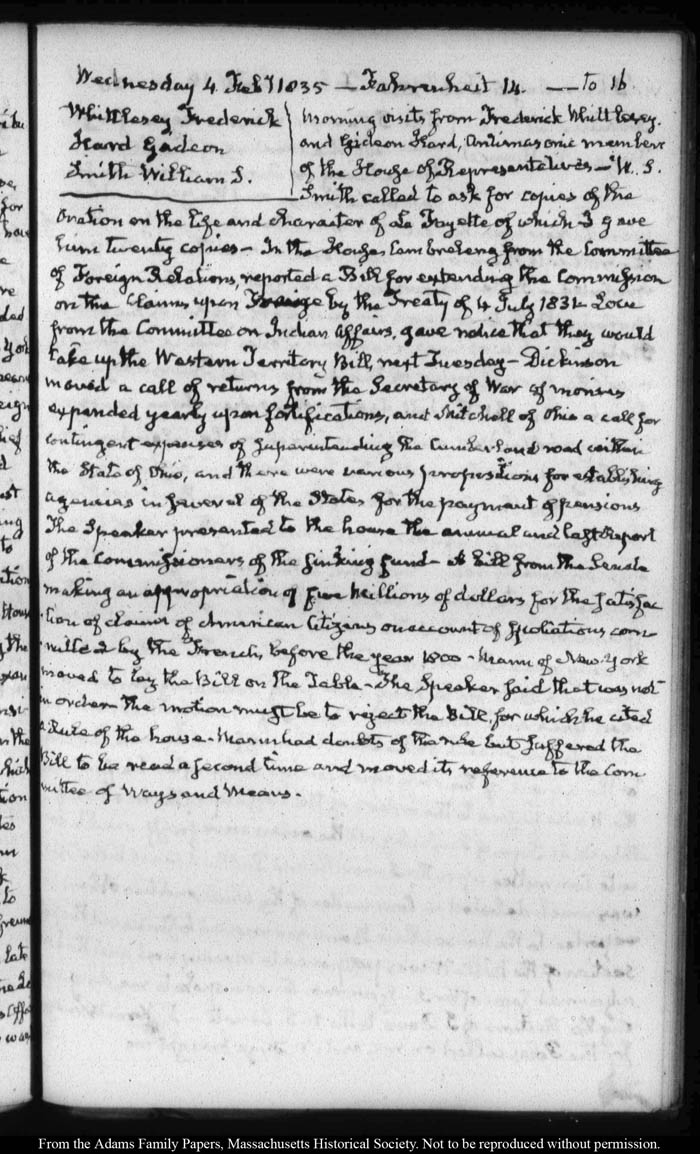 Wednesday 4. Feby 1835 — Fahrenheit 14. — to 16
Whittlesey Frederick
Hard Gideon
Smith William S.
Morning visits from Frederick Whittlesey.
and Gideon Hard, Antimasonic members
of the House of Representatives — W. S.
Smith called to ask for copies of the
Oration on the Life and character of La Fayette of which I gave
him twenty copies — In the House, Cambreleng from the Committee
of Foreign Relations, reported a Bill for extending the Commission
on the Claims upon France by the Treaty of 4 July 1831. Love
from the Committee on Indian Affairs, gave notice that they would
take up the Western Territory Bill, next Tuesday — Dickinson
moved a call of returns from the Secretary of War of monies
expended yearly upon fortifications, and Mitchell of Ohio a call for
contingent expenses of superintending the Cumberland road within
the State of Ohio, and there were various propositions for establishing
agencies in several of the States for the payment of pensions
The Speaker presented to the house the annual and last Report
of the Commissioners of the sinking fund — A bill from the Senate
making an appropriation of five Millions of dollars for the satisfac
-tion of claims of American Citizens on account of Spoliations com
-mitted by the French, before the year 1800 — Mann of New-York
moved to lay the Bill on the Table — The Speaker said that was not
in order — The motion must be to reject the Bill, for which he cited
a Rule of the house. Mann had doubts of the rule but suffered the
Bill to be read a second time and moved its reference to the Com
mittee of Ways and Means.
From the Adams Family Papers, Massachusetts Historical Society. Not to be reproduced without permission.